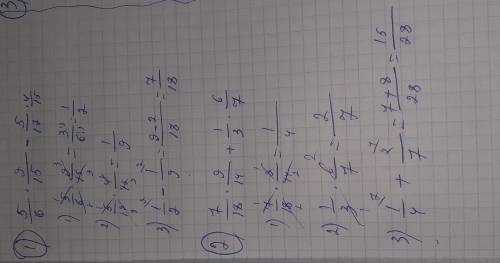 ③
① 5/6 · 9/15 - 5/12 · 4/15
1) 5/6 · 9/15 = 3·1/6·1 = 1/2
2) 5/12 · 4/15 = 1/9
3) 1/2 - 1/9 = 9-2/18 = 7/18
② 7/18 · 9/14 + 1/3 · 6/7
1) 7/18 · 9/14 = 1/4
2) 1/3 · 6/7 = 2/7
3) 1/4 + 2/7 = 7+8/28 = 15/28